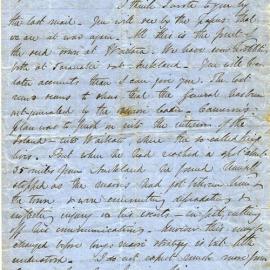 I think I wrote to you by
the last mail. You will see by the papers that
we are at war again. All this is the fruit of
the
both at Taranaki and Auckland. You will have
later accounts than I can give you. The last
news seems to shew that the General has been
out
plan was to push on into the interior of the
Island — into Waikato, where the so-called king
lives. But when he had reached a spot about
35 miles from Auckland he found himself
stopped as the maoris had got between him &
the town & were committing depredations &
inflicting injury on his escorts — in fact, cutting
off his communications. However this may be
changed before long. maori strategy is but little
understood. I do not expect much more from